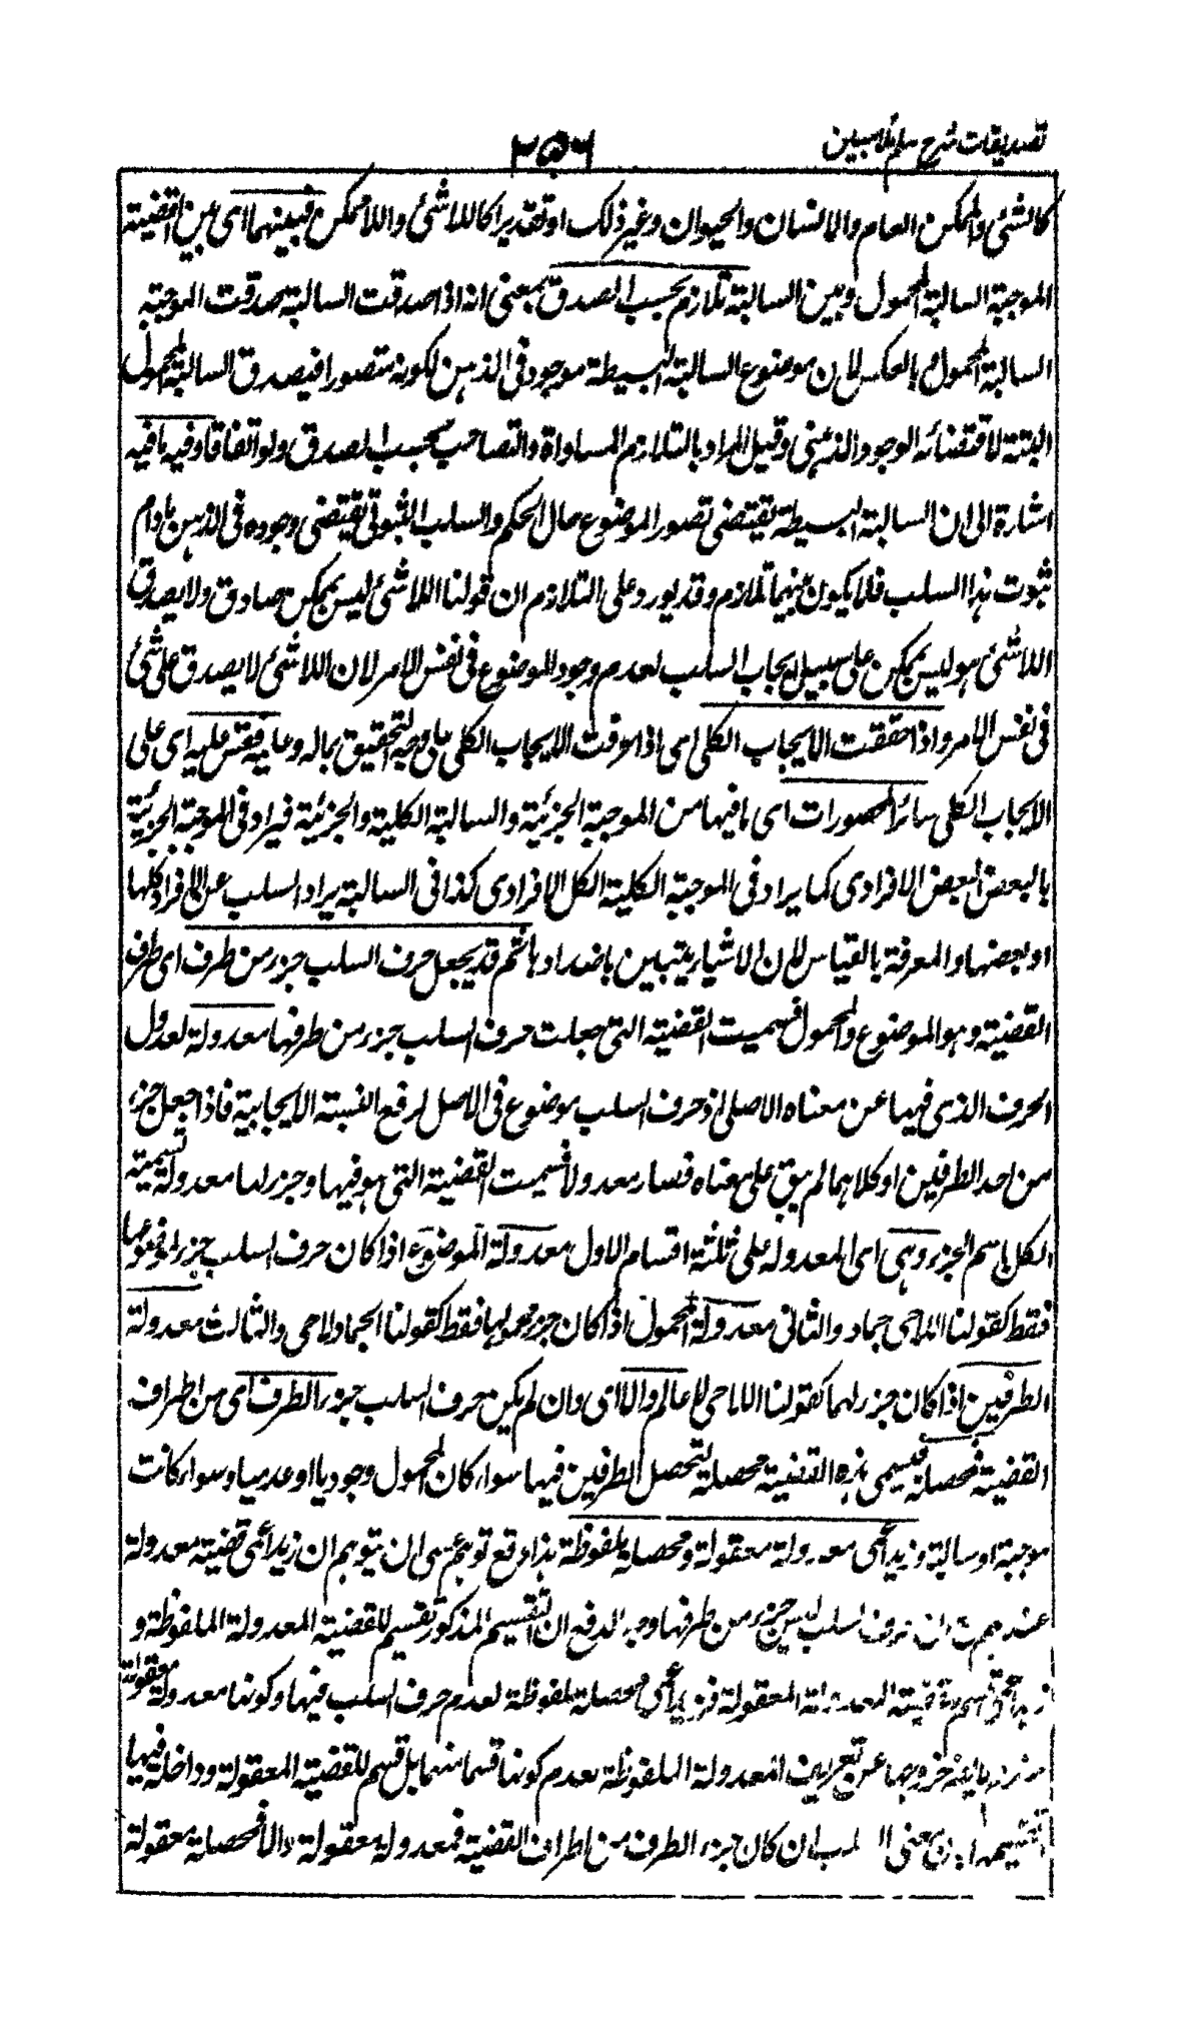 تصديقات شرح سلم ملا مبين
٢٥٦
كالشئ والممكن العام والانسان والحيوان وغير ذلك او تقديرا كاللاشئ واللاممكن فبينهما اى بين القضية
الموجبة السالبة المحمول وبين السالبة تلازم بحسب الصدق بمعنى انه اذا صدقت السالبة صدقت الموجبة
السالبة المحمول وبالعكس لان موضوع السالبة البسيطة موجود فى الذهن لكونه متصورا فيصدق السالبة المحمول
البتة لاقتضائه الوجود الذهنى وقيل المراد بالتلازم المساواة والتصاحب بحسب الصدق ولو اتفاقا وفيه ما فيه
اشارة الى ان السالبة البسيطة يقتضى تصور الموضوع حال الحكم والسلب الثبوتى يقتضى وجوده فى الذهن مادام
ثبوت هذا السلب فلا يكون بينهما تلازم وقد يورد على التلازم ان قولنا اللاشئ ليس بممكن صادق ولا يصدق
اللاشئ هو ليس بممكن على سبيل ايجاب السلب لعدم وجود الموضوع فى نفس الامر لان اللاشئ لا يصدق على شئ
فى نفس الامر واذا حققت الايجاب الكلى اى اذا عرفت الايجاب الكلى على وجه التحقيق بماله وعليه فقس عليه اى على
الايجاب الكلى سائر المحصورات اى ما فيها من الموجبة الجزئية والسالبة الكلية والجزئية فيراد فى الموجبة الجزئية
بالبعض البعض الافرادى كما يراد فى الموجبة الكلية الكل الافرادى كذا فى السالبة يراد السلب عن الافراد كلها
او بعضها والمعرفة بالقياس لان الاشياء يتبين باضدادها ثم قد يجعل حرف السلب جزء من طرف اى طرف
القضية وهو الموضوع والمحمول فسميت القضية التى جعلت حرف السلب جزء من طرفها معدولة لعدول
الحرف الذى فيها عن معناه الاصلى اذ حرف السلب موضوع فى الاصل لرفع النسبة الايجابية فاذا جعل جزء
من احد الطرفين او كلاهما لم يبق على معناه فصار معدولا فسميت القضية التى هو فيها وجزء لها معدولة تسمية
الكل باسم الجزء وهى اى المعدولة على ثلثة اقسام الاول معدولة الموضوع اذا كان حرف السلب جزء لموضوعها
فقط كقولنا اللاحى جماد والثانى معدولة المحمول اذا كان جزء محمولها فقط كقولنا الجماد لاحى والثالث معدولة
الطرفين اذا كان جزء لهما كقولنا اللاحى لا عالم والا اى وان لم يكن حرف السلب جزء الطرف اى من اطراف
القضية فمحصلة فيسمى هذه القضية محصلة لتحصل الطرفين فيها سواء كان المحمول وجوديا او عدميا وسواء كانت
موجبة او سالبة وزيد اعمى معدولة معقولة ومحصلة ملفوظة هذا دفع توهم عسى ان يتوهم ان زيد اعمى قضية معدولة
عندهم مع ان حرف السلب ليس جزء من طرفها وجه الدفع ان التقسيم المذكور تقسيم للقضية المعدولة الملفوظة و
زيد اعمى قسم من قضية المعدولة المعقولة فزيد اعمى محصلة ملفوظة لعدم حرف السلب فيها وكونها معدولة معقولة
خروجها عن تعريف المعدولة الملفوظة لعدم كونها قسما منها بل قسم للقضية المعقولة وداخلة فيها
معنى السلب ان كان جزء الطرف من اطراف القضية فمعدولة معقولة والا فمحصلة معقولة